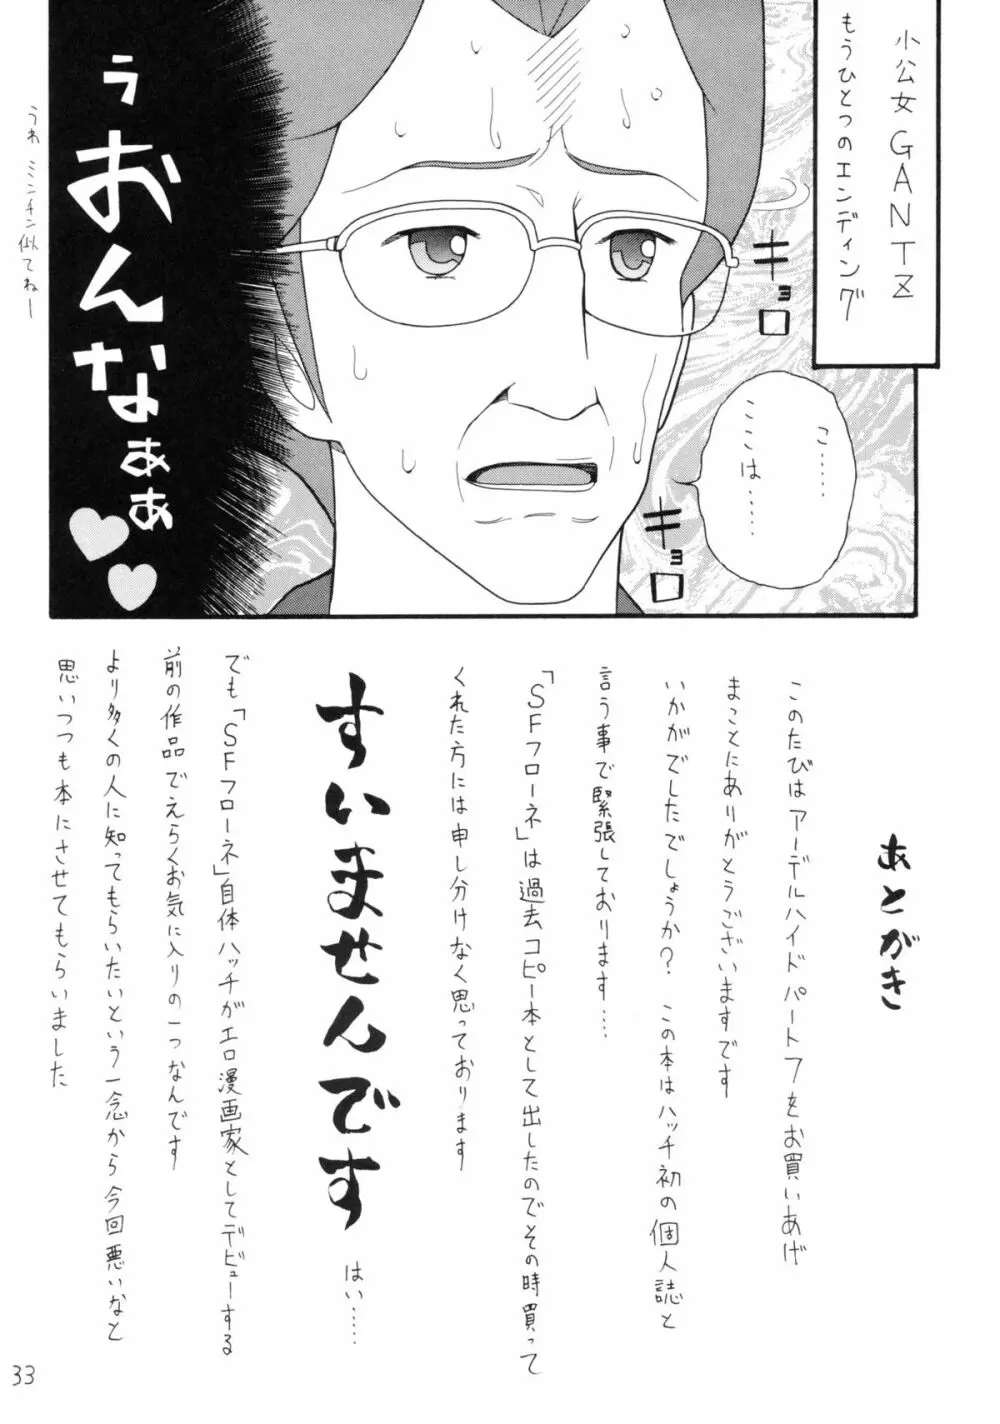 小公女GANTZ
もうひとつのエンディング
こ……
ここは……
キョロ
キョロ
うおんなぁぁ
うわ ミンチン似てねー
あとがき
このたびはアーデルハイドパート7をお買いあげ
まことにありがとうございますです
いかがでしたでしょうか？ この本はハッチ初の個人誌と
言う事で緊張しております…
「SFフローネ」は過去コピー本として出したのでその時買って
くれた方には申し分けなく思っております
すいませんです はい……
でも「SFフローネ」自体ハッチがエロ漫画家としてデビューする
前の作品でえらくお気に入りの一つなんです
より多くの人に知ってもらいたいという一念から今回悪いなと
思いつつも本にさせてもらいました
33